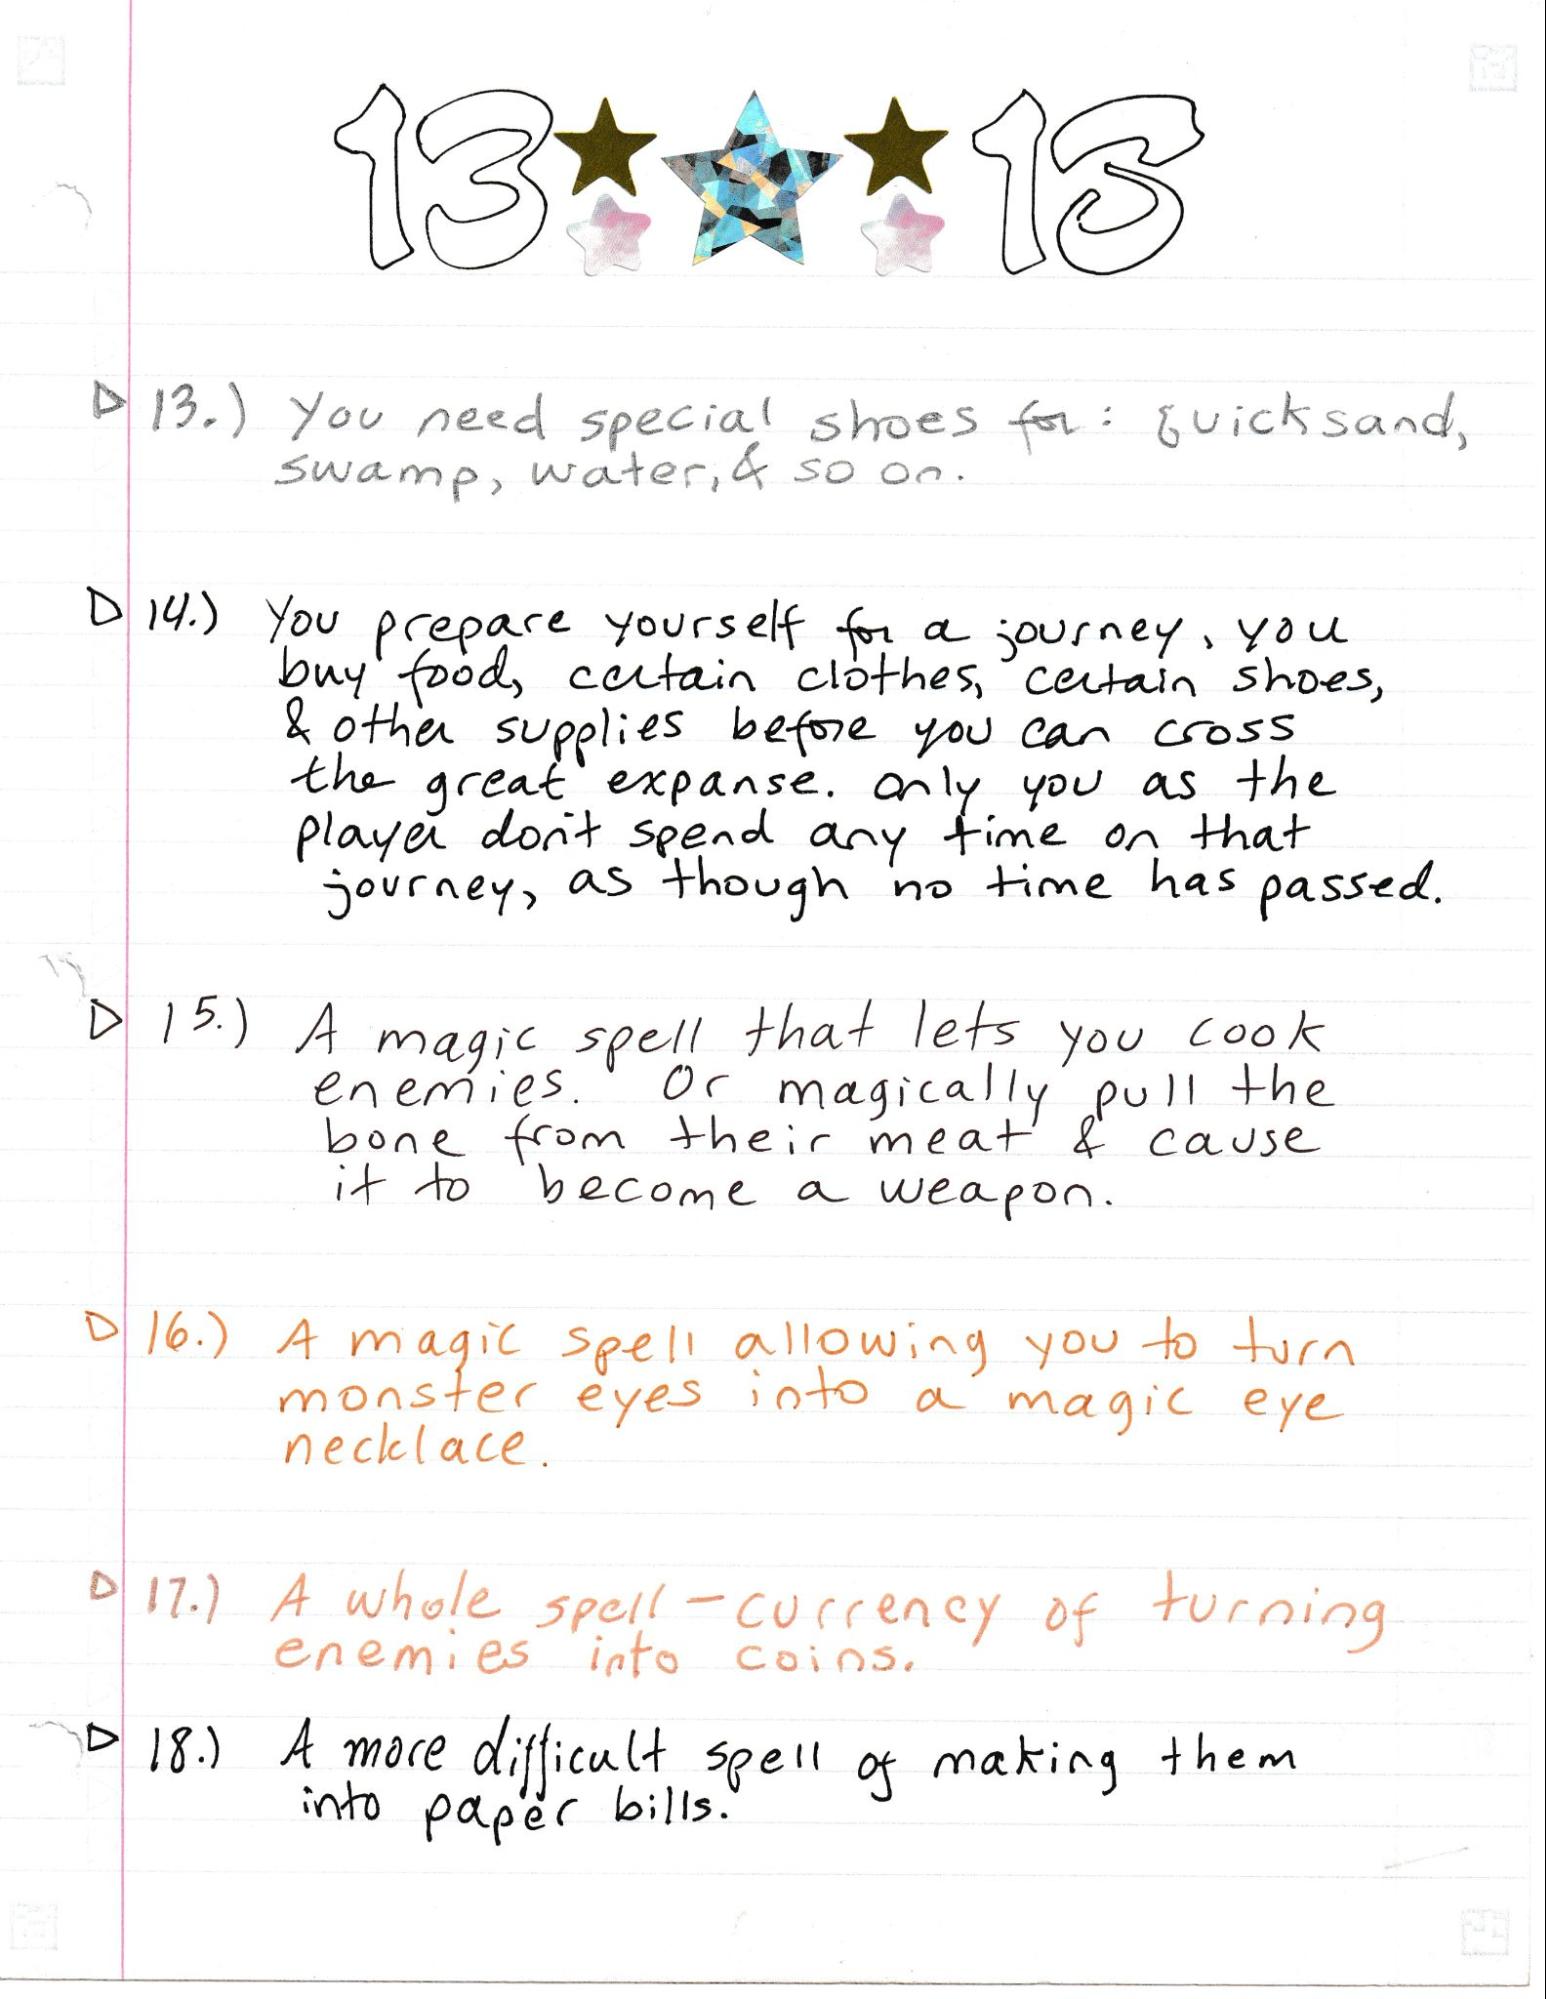 13 18
▷ 13.) You need special shoes for: quicksand,
swamp, water, & so on.
▷ 14.) You prepare yourself for a journey, you
buy food, certain clothes, certain shoes,
& other supplies before you can cross
the great expanse. only you as the
player don't spend any time on that
journey, as though no time has passed.
▷ 15.) A magic spell that lets you cook
enemies. Or magically pull the
bone from their meat & cause
it to become a weapon.
▷ 16.) A magic spell allowing you to turn
monster eyes into a magic eye
necklace.
▷ 17.) A whole spell-currency of turning
enemies into coins.
▷ 18.) A more difficult spell of making them
into paper bills.